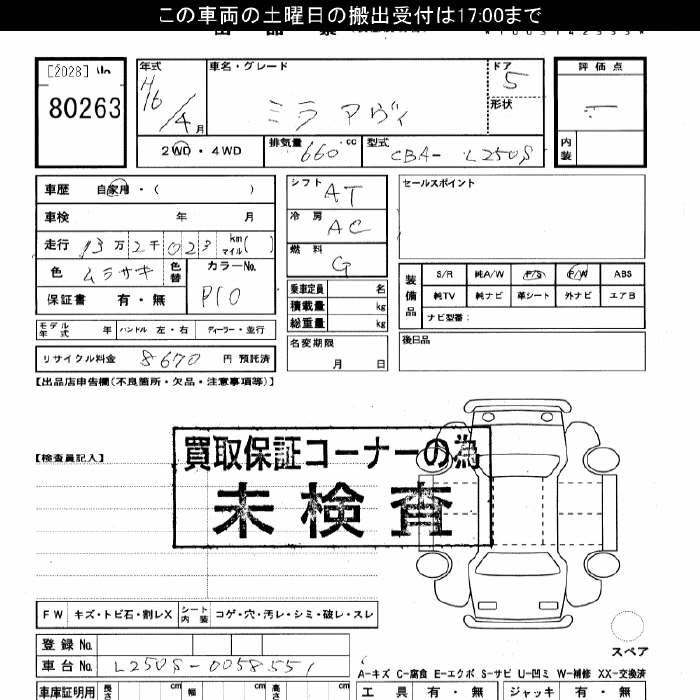 この車両の土曜日の搬出受付は17:00まで
[2028]
80263
年式
H16/4月
車名・グレード
ミラ アヴィ
ドア
5
形状
評価点
内装
2WD・4WD
排気量
660 cc
型式
CBA- L250S
車歴 自家用・( )
車検 年 月
走行 13万2千023 km マイル( )
色 ムラサキ 色替
カラーNo.
P10
保証書 有・無
シフト AT
冷房 AC
燃料 G
乗車定員 名
積載量 kg
総重量 kg
名変期限
月 日
セールスポイント
装備品
S/R 純A/W P/S P/W ABS
純TV 純ナビ 革シート 外ナビ エアB
ナビ型番:
後日品
モデル年式 年 ハンドル 左・右 ディーラー・並行
リサイクル料金 8670 円 預託済
【出品店申告欄(不良箇所・欠品・注意事項等)】
【検査員記入】
買取保証コーナーの為
未検査
FW キズ・トビ石・割レX シート内装 コゲ・穴・汚レ・シミ・破レ・スレ
スペア
登録No.
車台No. L250S-0058551
A-キズ C-腐食 E-エクボ S-サビ U-凹ミ W-補修 XX-交換済
車庫証明用 長さ cm 幅 cm 高さ cm
工具 有・無 ジャッキ 有・無